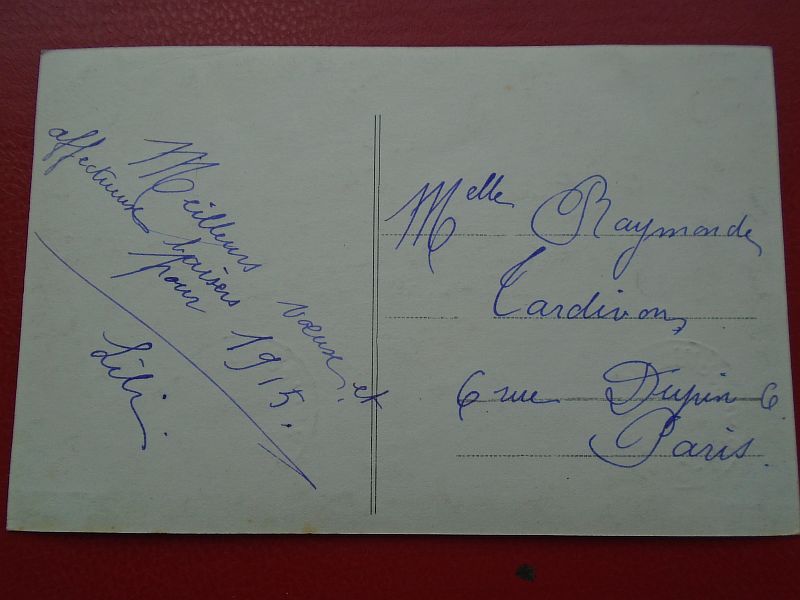 Meilleurs vœux et
affectueux baisers
pour 1915.
Lili.
Melle Raymonde
Tardivon
6 rue Dupin 6
Paris.